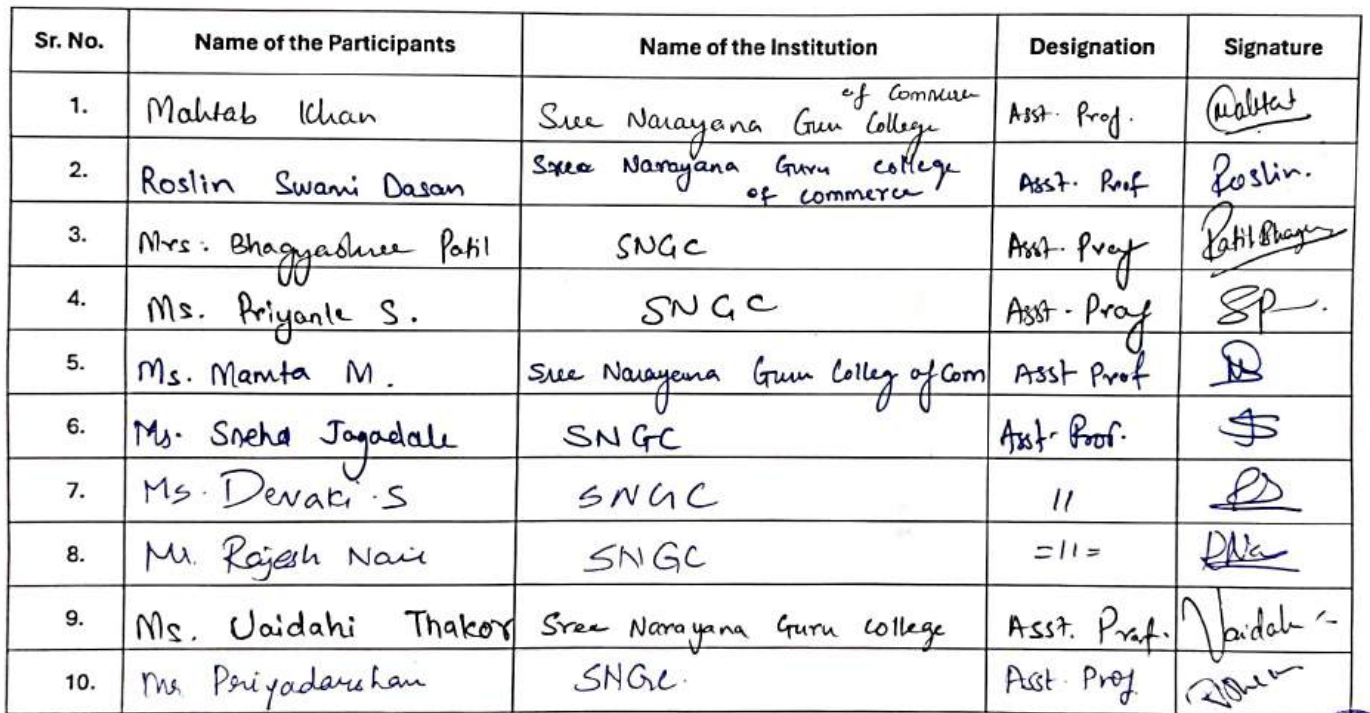 Sr. No. Name of the Participants Name of the Institution Designation Signature
1. Mahtab Khan Sree Narayana Guru College of Commerce Asst. Prof. Mahtab
2. Roslin Swami Dasan Sree Narayana Guru college of commerce Asst. Prof Roslin.
3. Mrs. Bhagyashree Patil SNGC Asst. Prof Patil
4. Ms. Priyanka S. SNGC Asst. Prof SP
5. Ms. Mamta M. Sree Narayana Guru Colleg of Com Asst Prof
6. Ms. Sneha Jagadale SNGC Asst. Prof.
7. Ms. Devaki S SNGC "
8. Mr. Rajesh Nair SNGC =11=
9. Ms. Vaidahi Thakor Sree Narayana Guru college Asst. Prof. Vaidahi
10. Mr Priyadarshan SNGC. Asst. Prof